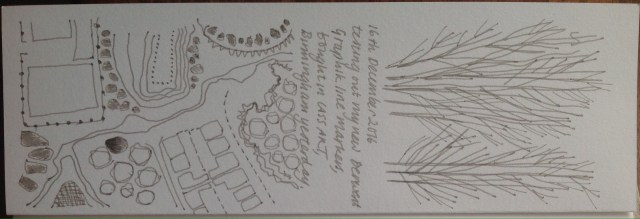 16th December 2016
testing out my new Derwent
Graphik line markers,
bought in CASS ART,
Birmingham yesterday